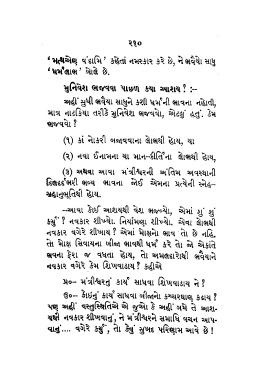 ૨૧૦
'મત્થએણ વંદામિ' કહેતાં નમસ્કાર કરે છે, ને ભવૈયો સાધુ
'ધર્મલાભ' બોલે છે.
મુનિવેશ ભજવવા પાછળ કયા આશય ? :–
અહીં સુધી ભવૈયા સાધુને કશી ધર્મની ભાવના નહોતી,
માત્ર નાટકિયા તરીકે મુનિવેશ ભજવવો, એટલું હતું. કેમ
ભજવવો ?
(૧) કાં નોકરી બજાવવાના લોભથી હોય, યા
(૨) નવા ઈનામના યા માન-કીર્તિના લોભથી હોય,
(૩) અથવા આવા મંત્રીશ્વરની અંતિમ અવસ્થાની
ભરી ભવ્ય ભાવના જોઈ એમના પ્રત્યેની સ્નેહ–
સહાનુભૂતિથી હોય.
–આવા કોઈ આશયથી વેશ ભજવ્યો, એમાં શું શું
કર્યું ? નવકાર શીખ્યો. નિર્યામણા શીખ્યો. એવા લોભથી
નવકાર વગેરે શીખાય ? એમાં મોક્ષનો ભાવ તો છે નહિ.
તો મોક્ષ સિવાયના બીજા ભાવથી ધર્મ કરે તો જો એકાંતે
ભવના ફેરા જ વધતા હોય, તો અમલદારોથી ભવૈયાને
નવકાર વગેરે કેમ શિખવાડાય ? કહીએ
પ્ર૦– મંત્રીશ્વરનું કાર્ય સાધવા શિખવાડાય ને ?
ઉ૦– કોઈનું કાર્ય સાધવા બીજાનો કચ્ચરઘાણ કઢાય ?
પણ અહીં વસ્તુસ્થિતિએ એ જુઓ કે અહીં ભલે તે આશ-
યથી નવકાર શીખવાનું, ને મંત્રીશ્વરને સમાધિ વચન આપ-
વાનું.... વગેરે કર્યું, તો કેવું સુખદ પરિણામ આવે છે !